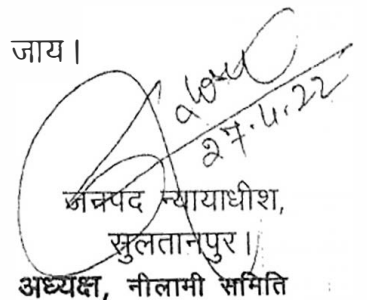 जाय।
27.4.22
जनपद न्यायाधीश,
सुलतानपुर।
अध्यक्ष, नीलामी समिति